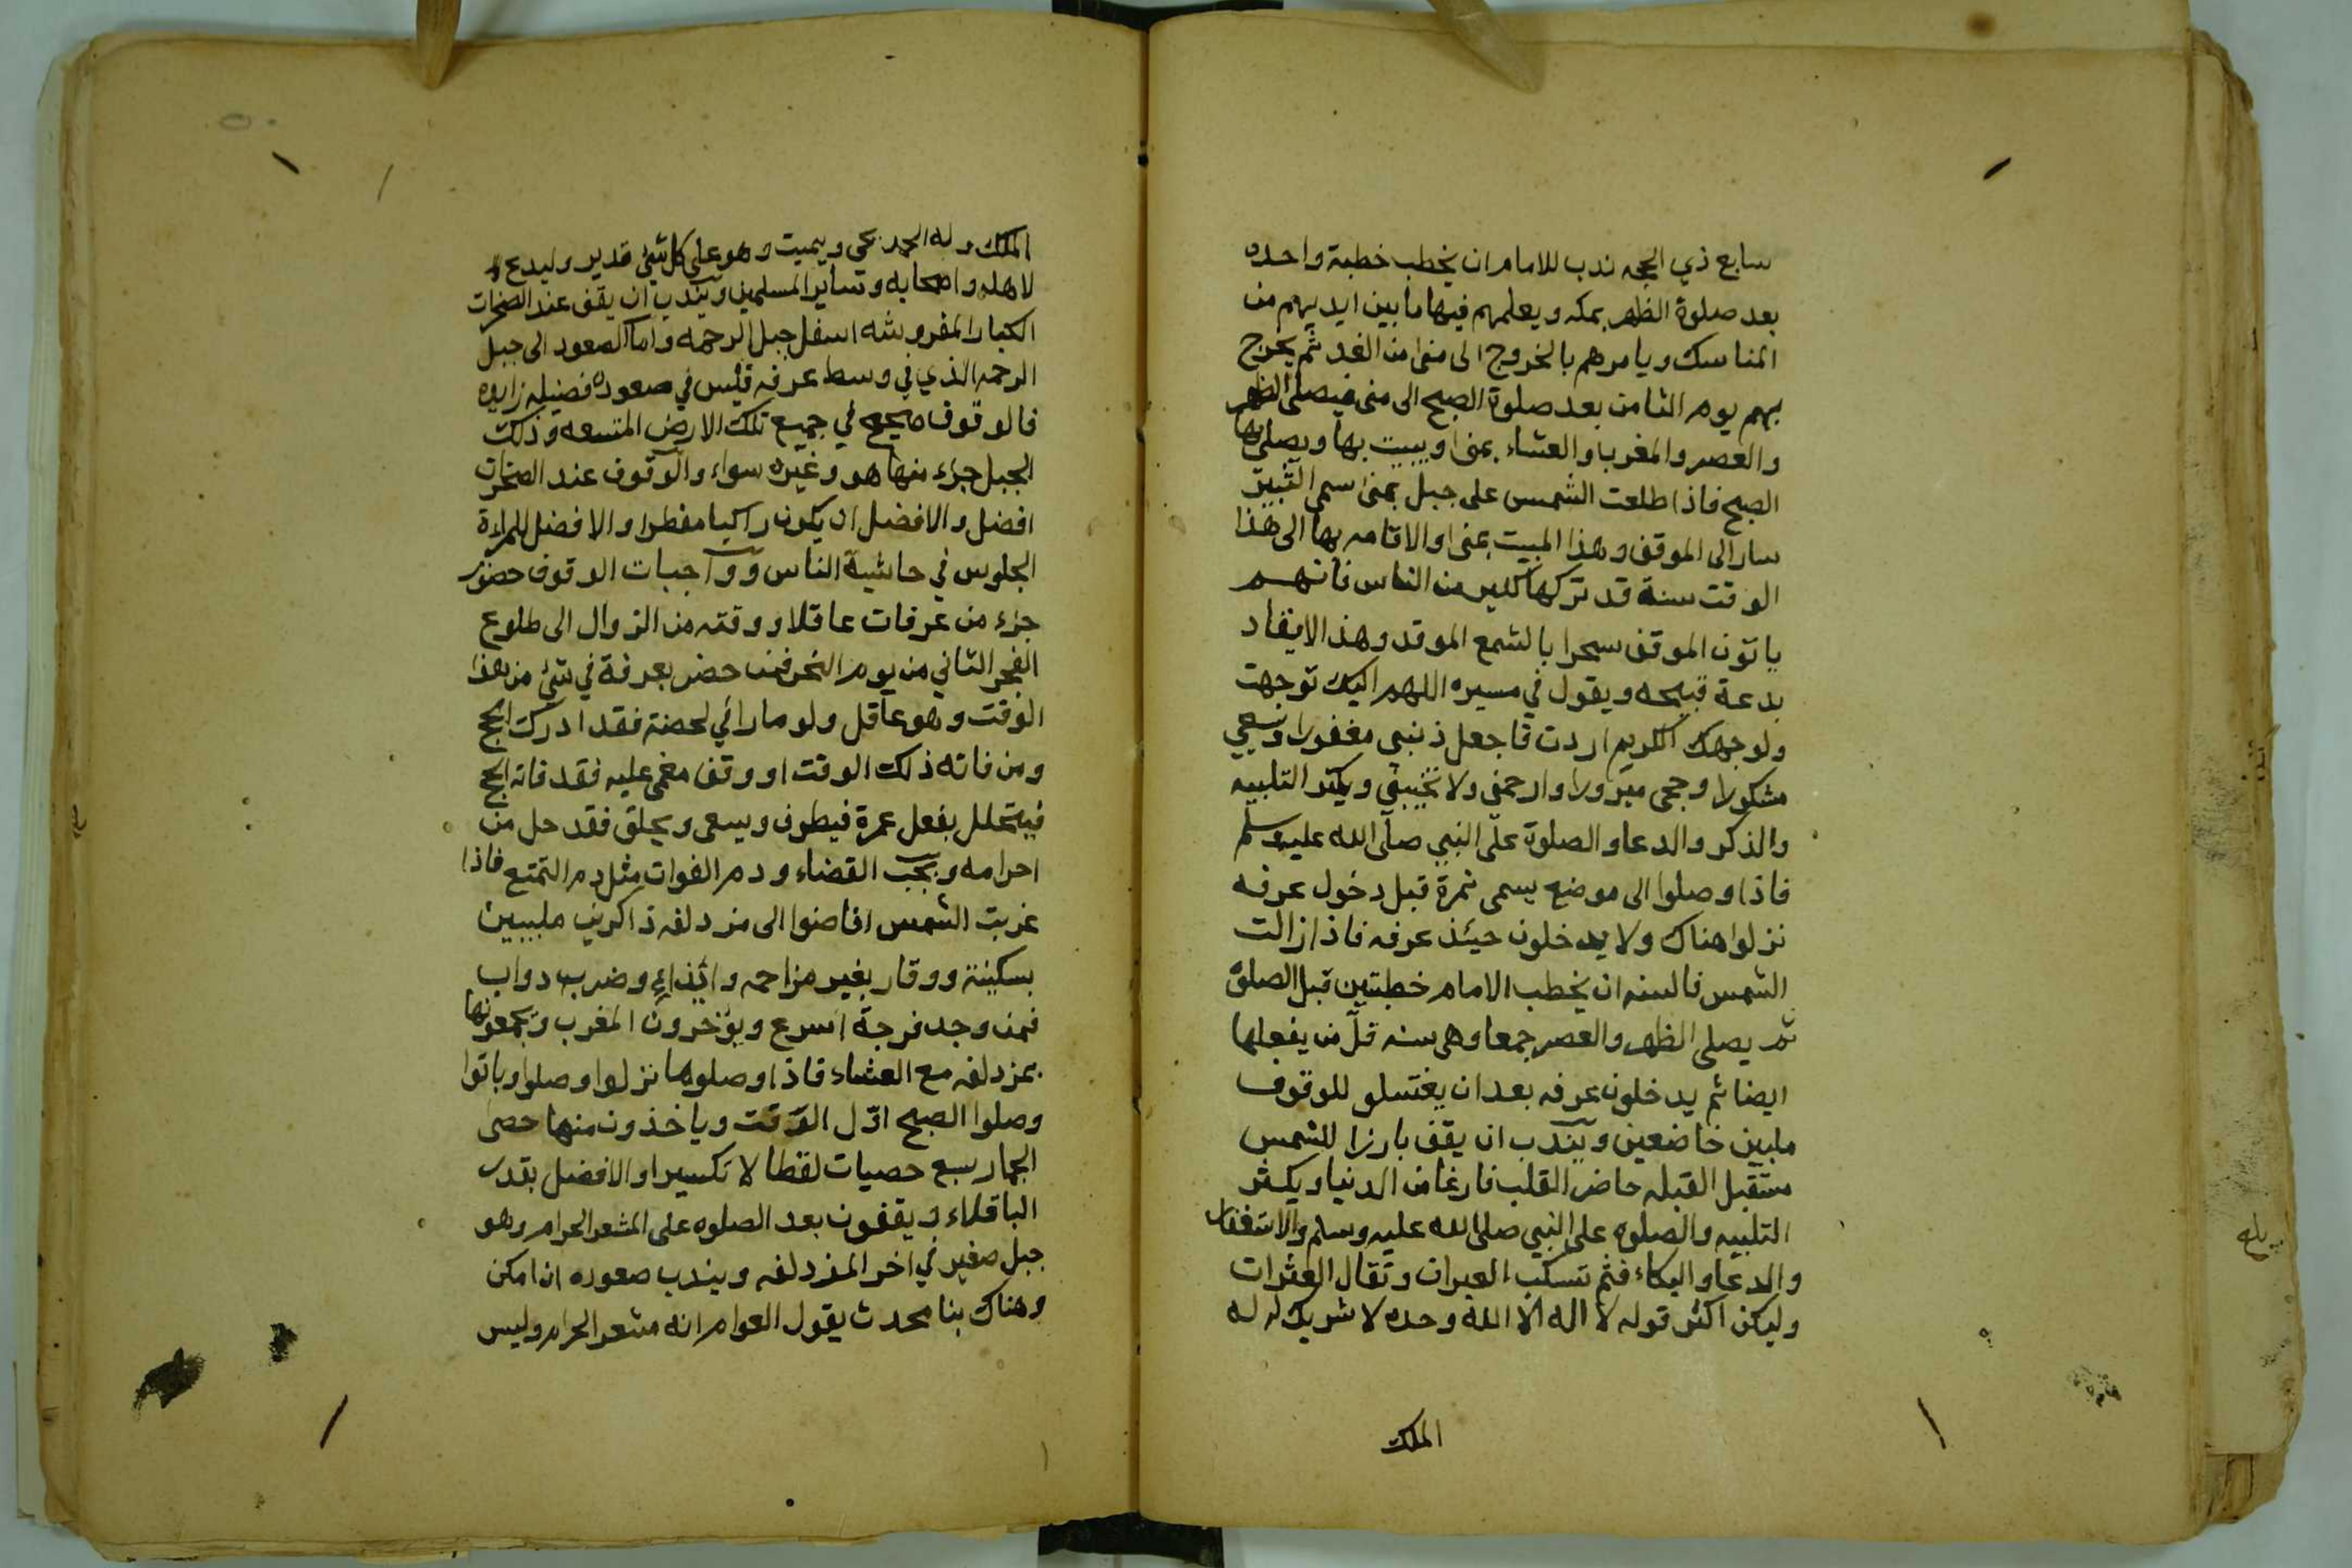 سابع ذي الحجه ندب للامام ان يخطب خطبة واحده
بعد صلوة الظهر بمكه ويعلمهم فيها ما بين ايديهم من
المناسك ويامرهم بالخروج الى منى من الغد ثم يخرج
بهم يوم الثامن بعد صلوة الصبح الى منى فيصلى الظهر
والعصر والمغرب والعشاء بمنى ويبيت بها ويصلى بها
الصبح فاذا طلعت الشمس على جبل بمنى سمى الثبير
سار الى الموقف وهذا المبيت بمنى والاقامه بها الى هذا
الوقت سنة قد تركها كثير من الناس فانهم
ياتون الموقف سحرا بالشمع الموقد وهذا الايقاد
بدعة قبيحه ويقول في مسيره اللهم اليك توجهت
ولوجهك الكريم اردت فاجعل ذنبي مغفورا وسعيي
مشكورا وحجى مبرورا وارحمنى ولا تخيبني ويكثر التلبيه
والذكر والدعا والصلوة على النبي صلى الله عليه وسلم
فاذا وصلوا الى موضع يسمى نمرة قبل دخول عرفه
نزلوا هناك ولا يدخلون حيئذ عرفه فاذا زالت
الشمس فالسنه ان يخطب الامام خطبتين قبل الصلوة
ثم يصلى الظهر والعصر جمعا وهى سنه قلّ من يفعلها
ايضا ثم يدخلون عرفه بعد ان يغتسلو للوقوف
ملبين خاضعين ويندب ان يقف بارزا للشمس
مستقبل القبله حاضر القلب فارغا من الدنيا ويكثر
التلبيه والصلوه على النبي صلى الله عليه وسلم والاستغفار
والدعا والبكاء فثم تسكب العبرات وتقال العثرات
وليكن اكثر قوله لا اله الا الله وحده لا شريك له له
الملك
الملك وله الحمد يحى ويميت وهو على كل شئ قدير وليدع
لاهله واصحابه وسائر المسلمين ويندب ان يقف عند الصخرات
الكبار المفروشه اسفل جبل الرحمه واما الصعود الى جبل
الرحمه الذي في وسط عرفه فليس في صعوده فضيله زايده
فالوقوف صحيح في جميع تلك الارض المتسعه وذلك
الجبل جزء منها هو وغيره سواء والوقوف عند الصخرات
افضل والافضل ان يكون راكبا مفطرا والافضل للمراة
الجلوس في حاشية الناس وواجبات الوقوف حضور
جزء من عرفات عاقلا ووقته من الزوال الى طلوع
الفجر الثاني من يوم النحر فمن حضر بعرفة في شئ من هذا
الوقت وهو عاقل ولو مارا في لحضة فقد ادرك الحج
ومن فاته ذلك الوقت او وقف مغمى عليه فقد فاته الحج
فيتحلل بفعل عمرة فيطوف ويسعى ويحلق فقد حل من
احرامه ويجب القضاء ودم الفوات مثل دم التمتع فاذا
غربت الشمس افاضوا الى مزدلفه ذاكرين ملبيين
بسكينة ووقار بغير مزاحمه وايذاء وضرب دواب
فمن وجد فرجة اسرع ويؤخرون المغرب ويجمعونها
بمزدلفه مع العشاء فاذا وصلوها نزلوا وصلوا وباتوا
وصلوا الصبح اوّل الوقت وياخذون منها حصى
الجمار سبع حصيات لقطا لا تكسيرا والافضل بقدر
الباقلاء ويقفون بعد الصلوه على المشعر الحرام وهو
جبل صغير في اخر المزدلفه ويندب صعوده ان امكن
وهناك بنا محدث يقول العوام انه مشعر الحرام وليس